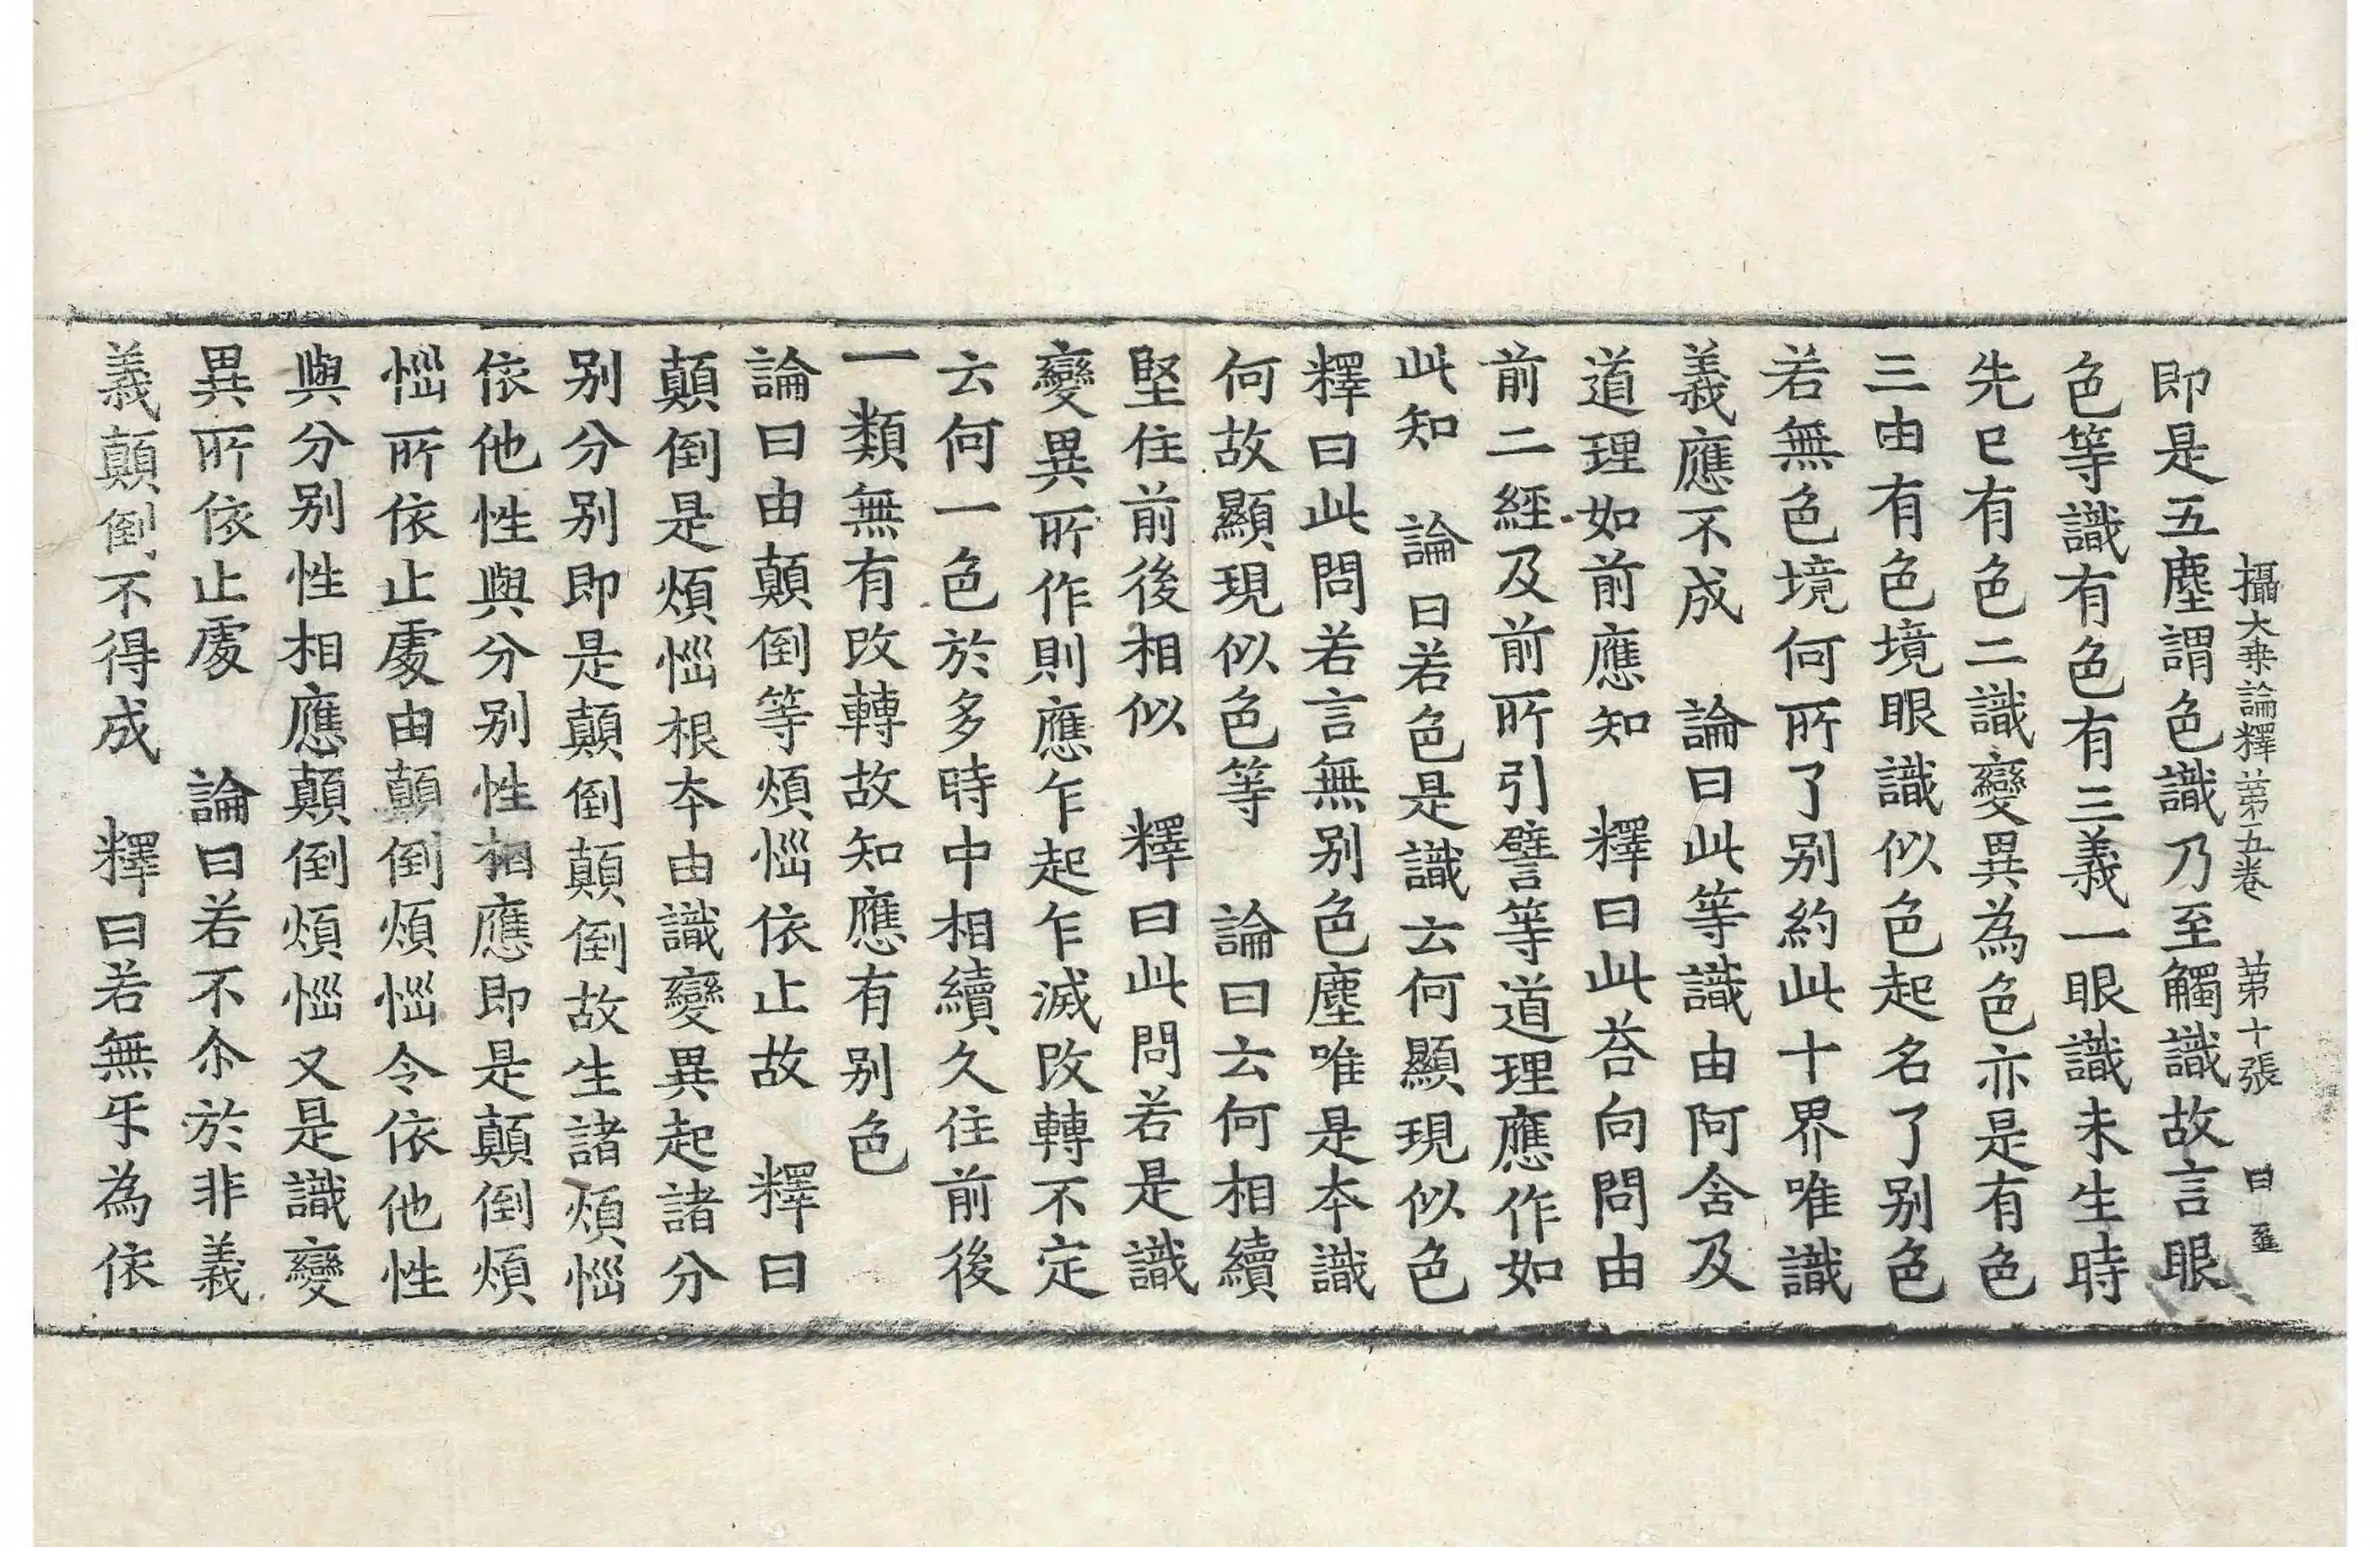 攝大乗論釋苐五卷　苐十張　曰
即是五塵謂色識乃至觸識故言眼
色等識有色有三義一眼識未生時
先巳有色二識變異為色亦是有色
三由有色境眼識似色起名了别色
若無色境何所了别約此十界唯識
義應不成　論曰此等識由阿含及
道理如前應知　釋曰此荅向問由
前二經及前所引譬等道理應作如
此知　論曰若色是識云何顯現似色
釋曰此問若言無别色塵唯是夲識
何故顯現似色等　論曰云何相續
堅住前後相似　釋曰此問若是識
變異所作則應乍起乍滅改轉不定
云何一色於多時中相續久住前後
一類無有改轉故知應有别色
論曰由顛倒等煩惱依止故　釋曰
顛倒是煩惱根夲由識變異起諸分
别分别即是顛倒顛倒故生諸煩惱
依他性與分别性相應即是顛倒煩
惱所依止處由顛倒煩惱令依他性
與分别性相應顛倒煩惱又是識變
異所依止處　論曰若不尒於非義
義顛倒不得成　釋曰若無㸦為依